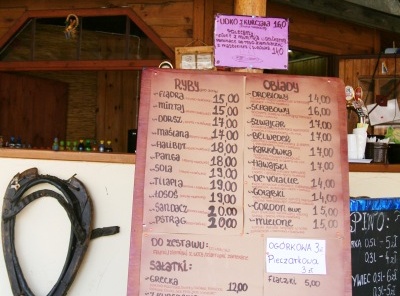 UDKO Z KURCZAKA 16,0
14,0
RYBY
FLĄDRA 15,00
MINTAJ 15,00
DORSZ 17,00
MAŚLANA 17,00
HALIBUT 18,00
PANGA 18,00
SOLA 19,00
TILAPIA 19,00
ŁOSOŚ 19,00
SANDACZ 20,00
PSTRĄG 20,00
DO ZESTAWU:
SAŁATKI:
GRECKA 12,00
OBIADY
DROBIOWY 14,00
SCHABOWY 16,00
SZWAJCAR 17,00
BELWEDER 17,00
KARKÓWKA 17,00
HAWAJSKI 17,00
DE VOLAILLE 14,00
GÓRALSKI 14,00
CORDON 15,00
MIELONE 15,00
OGÓRKOWA 3zł
Pieczarkowa
3 zł
FLACZKI 5,00
PIWO:
0,5l - 5zł
0,3l - 4zł
ŻYWIEC 0,5l - 6zł
0,3l - 5zł